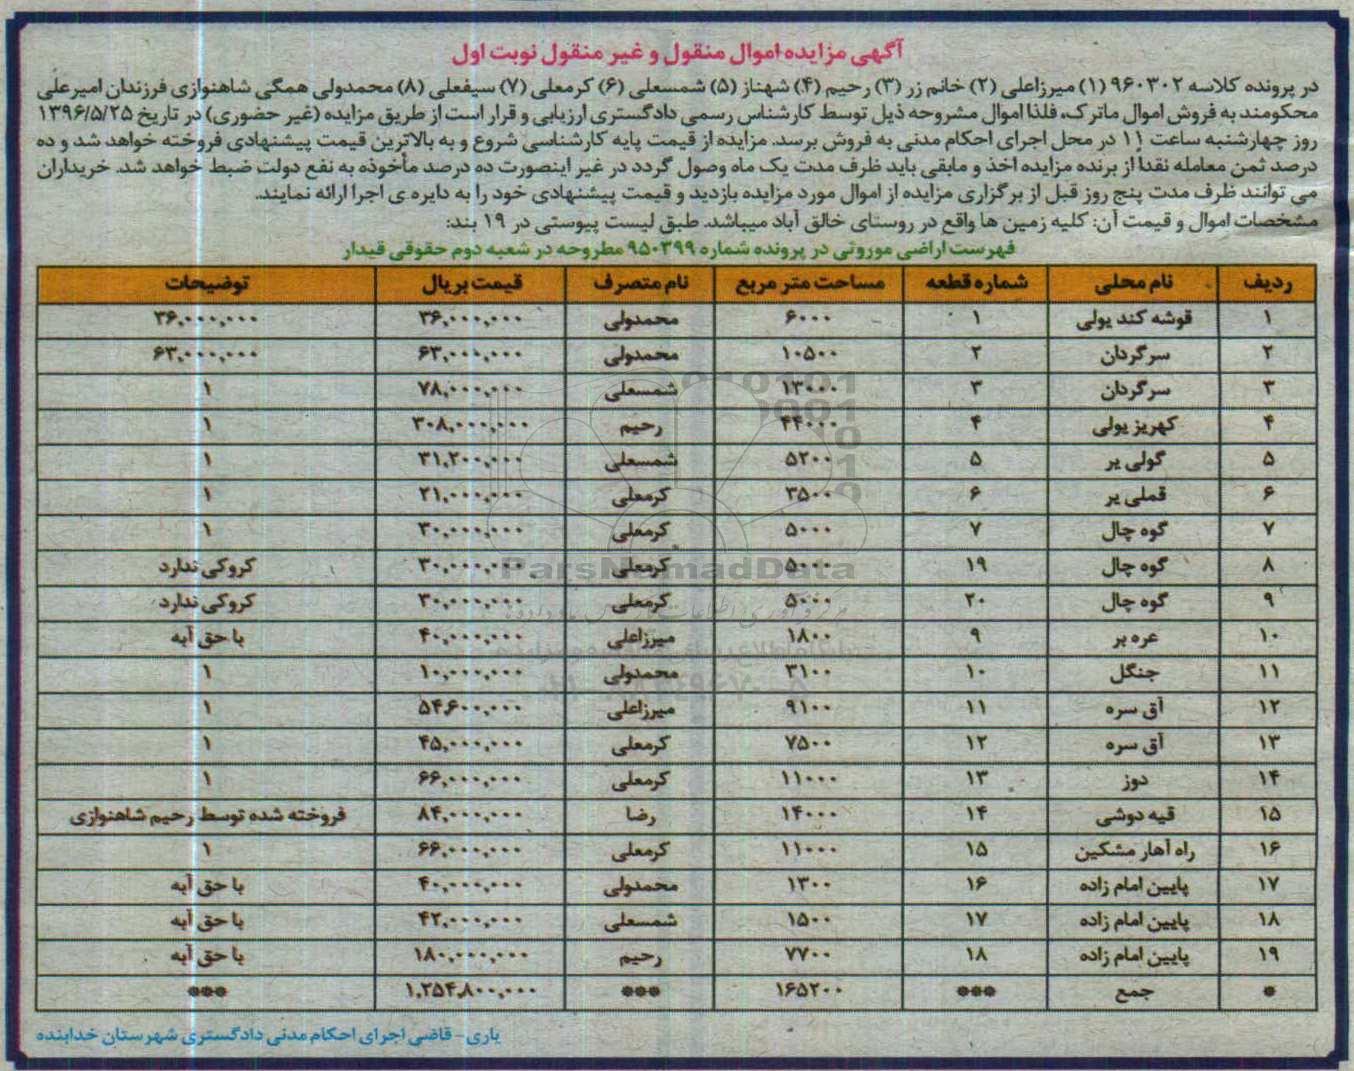 آگهی مزایده اموال منقول و غیر منقول نوبت اول
در پرونده کلاسه ۹۶۰۳۰۲ (۱) میرزاعلی (۲) خانم زر (۳) رحیم (۴) شهناز (۵) شمسعلی (۶) کرمعلی (۷) سیفعلی (۸) محمدولی همگی شاهنوازی فرزندان امیرعلی
محکومند به فروش اموال ماترک، فلذا اموال مشروحه ذیل توسط کارشناس رسمی دادگستری ارزیابی و قرار است از طریق مزایده (غیر حضوری) در تاریخ ۱۳۹۶/۵/۲۵
روز چهارشنبه ساعت ۱۱ در محل اجرای احکام مدنی به فروش برسد. مزایده از قیمت پایه کارشناسی شروع و به بالاترین قیمت پیشنهادی فروخته خواهد شد و ده
درصد ثمن معامله نقداً از برنده مزایده اخذ و مابقی باید ظرف مدت یک ماه وصول گردد در غیر اینصورت ده درصد مأخوذه به نفع دولت ضبط خواهد شد. خریداران
می توانند ظرف مدت پنج روز قبل از برگزاری مزایده از اموال مورد مزایده بازدید و قیمت پیشنهادی خود را به دایره ی اجرا ارائه نمایند.
مشخصات اموال و قیمت آن: کلیه زمین ها واقع در روستای خالق آباد میباشد. طبق لیست پیوستی در ۱۹ بند:
فهرست اراضی موروثی در پرونده شماره ۹۵۰۳۹۹ مطروحه در شعبه دوم حقوقی قیدار
ردیف نام محلی شماره قطعه مساحت متر مربع نام متصرف قیمت بریال توضیحات
۱ قوشه کند یولی ۱ ۶۰۰۰ محمدولی ۳۶,۰۰۰,۰۰۰ ۳۶,۰۰۰,۰۰۰
۲ سرگردان ۲ ۱۰۵۰۰ محمدولی ۶۳,۰۰۰,۰۰۰ ۶۳,۰۰۰,۰۰۰
۳ سرگردان ۳ ۱۳۰۰۰ شمسعلی ۷۸,۰۰۰,۰۰۰ ۱
۴ کهریز یولی ۴ ۴۴۰۰۰ رحیم ۳۰۸,۰۰۰,۰۰۰ ۱
۵ گولی یر ۵ ۵۲۰۰ شمسعلی ۳۱,۲۰۰,۰۰۰ ۱
۶ قملی یر ۶ ۳۵۰۰ کرمعلی ۲۱,۰۰۰,۰۰۰ ۱
۷ گوه چال ۷ ۵۰۰۰ کرمعلی ۳۰,۰۰۰,۰۰۰ ۱
۸ گوه چال ۱۹ ۵۰۰۰ کرمعلی ۳۰,۰۰۰,۰۰۰ کروکی ندارد
۹ گوه چال ۲۰ ۵۰۰۰ کرمعلی ۳۰,۰۰۰,۰۰۰ کروکی ندارد
۱۰ عره بر ۹ ۱۸۰۰ میرزاعلی ۴۰,۰۰۰,۰۰۰ با حق آبه
۱۱ جنگل ۱۰ ۳۱۰۰ محمدولی ۱۰,۰۰۰,۰۰۰ ۱
۱۲ آق سره ۱۱ ۹۱۰۰ میرزاعلی ۵۴,۶۰۰,۰۰۰ ۱
۱۳ آق سره ۱۲ ۷۵۰۰ کرمعلی ۴۵,۰۰۰,۰۰۰ ۱
۱۴ دوز ۱۳ ۱۱۰۰۰ کرمعلی ۶۶,۰۰۰,۰۰۰ ۱
۱۵ قیه دوشی ۱۴ ۱۴۰۰۰ رضا ۸۴,۰۰۰,۰۰۰ فروخته شده توسط رحیم شاهنوازی
۱۶ راه آهار مشکین ۱۵ ۱۱۰۰۰ کرمعلی ۶۶,۰۰۰,۰۰۰ ۱
۱۷ پایین امام زاده ۱۶ ۱۳۰۰ محمدولی ۴۰,۰۰۰,۰۰۰ با حق آبه
۱۸ پایین امام زاده ۱۷ ۱۵۰۰ شمسعلی ۴۲,۰۰۰,۰۰۰ با حق آبه
۱۹ پایین امام زاده ۱۸ ۷۷۰۰ رحیم ۱۸۰,۰۰۰,۰۰۰ با حق آبه
* جمع *** ۱۶۵۲۰۰ *** ۱,۲۵۴,۸۰۰,۰۰۰ ***
یاری - قاضی اجرای احکام مدنی دادگستری شهرستان خدابنده
ParsNamadData